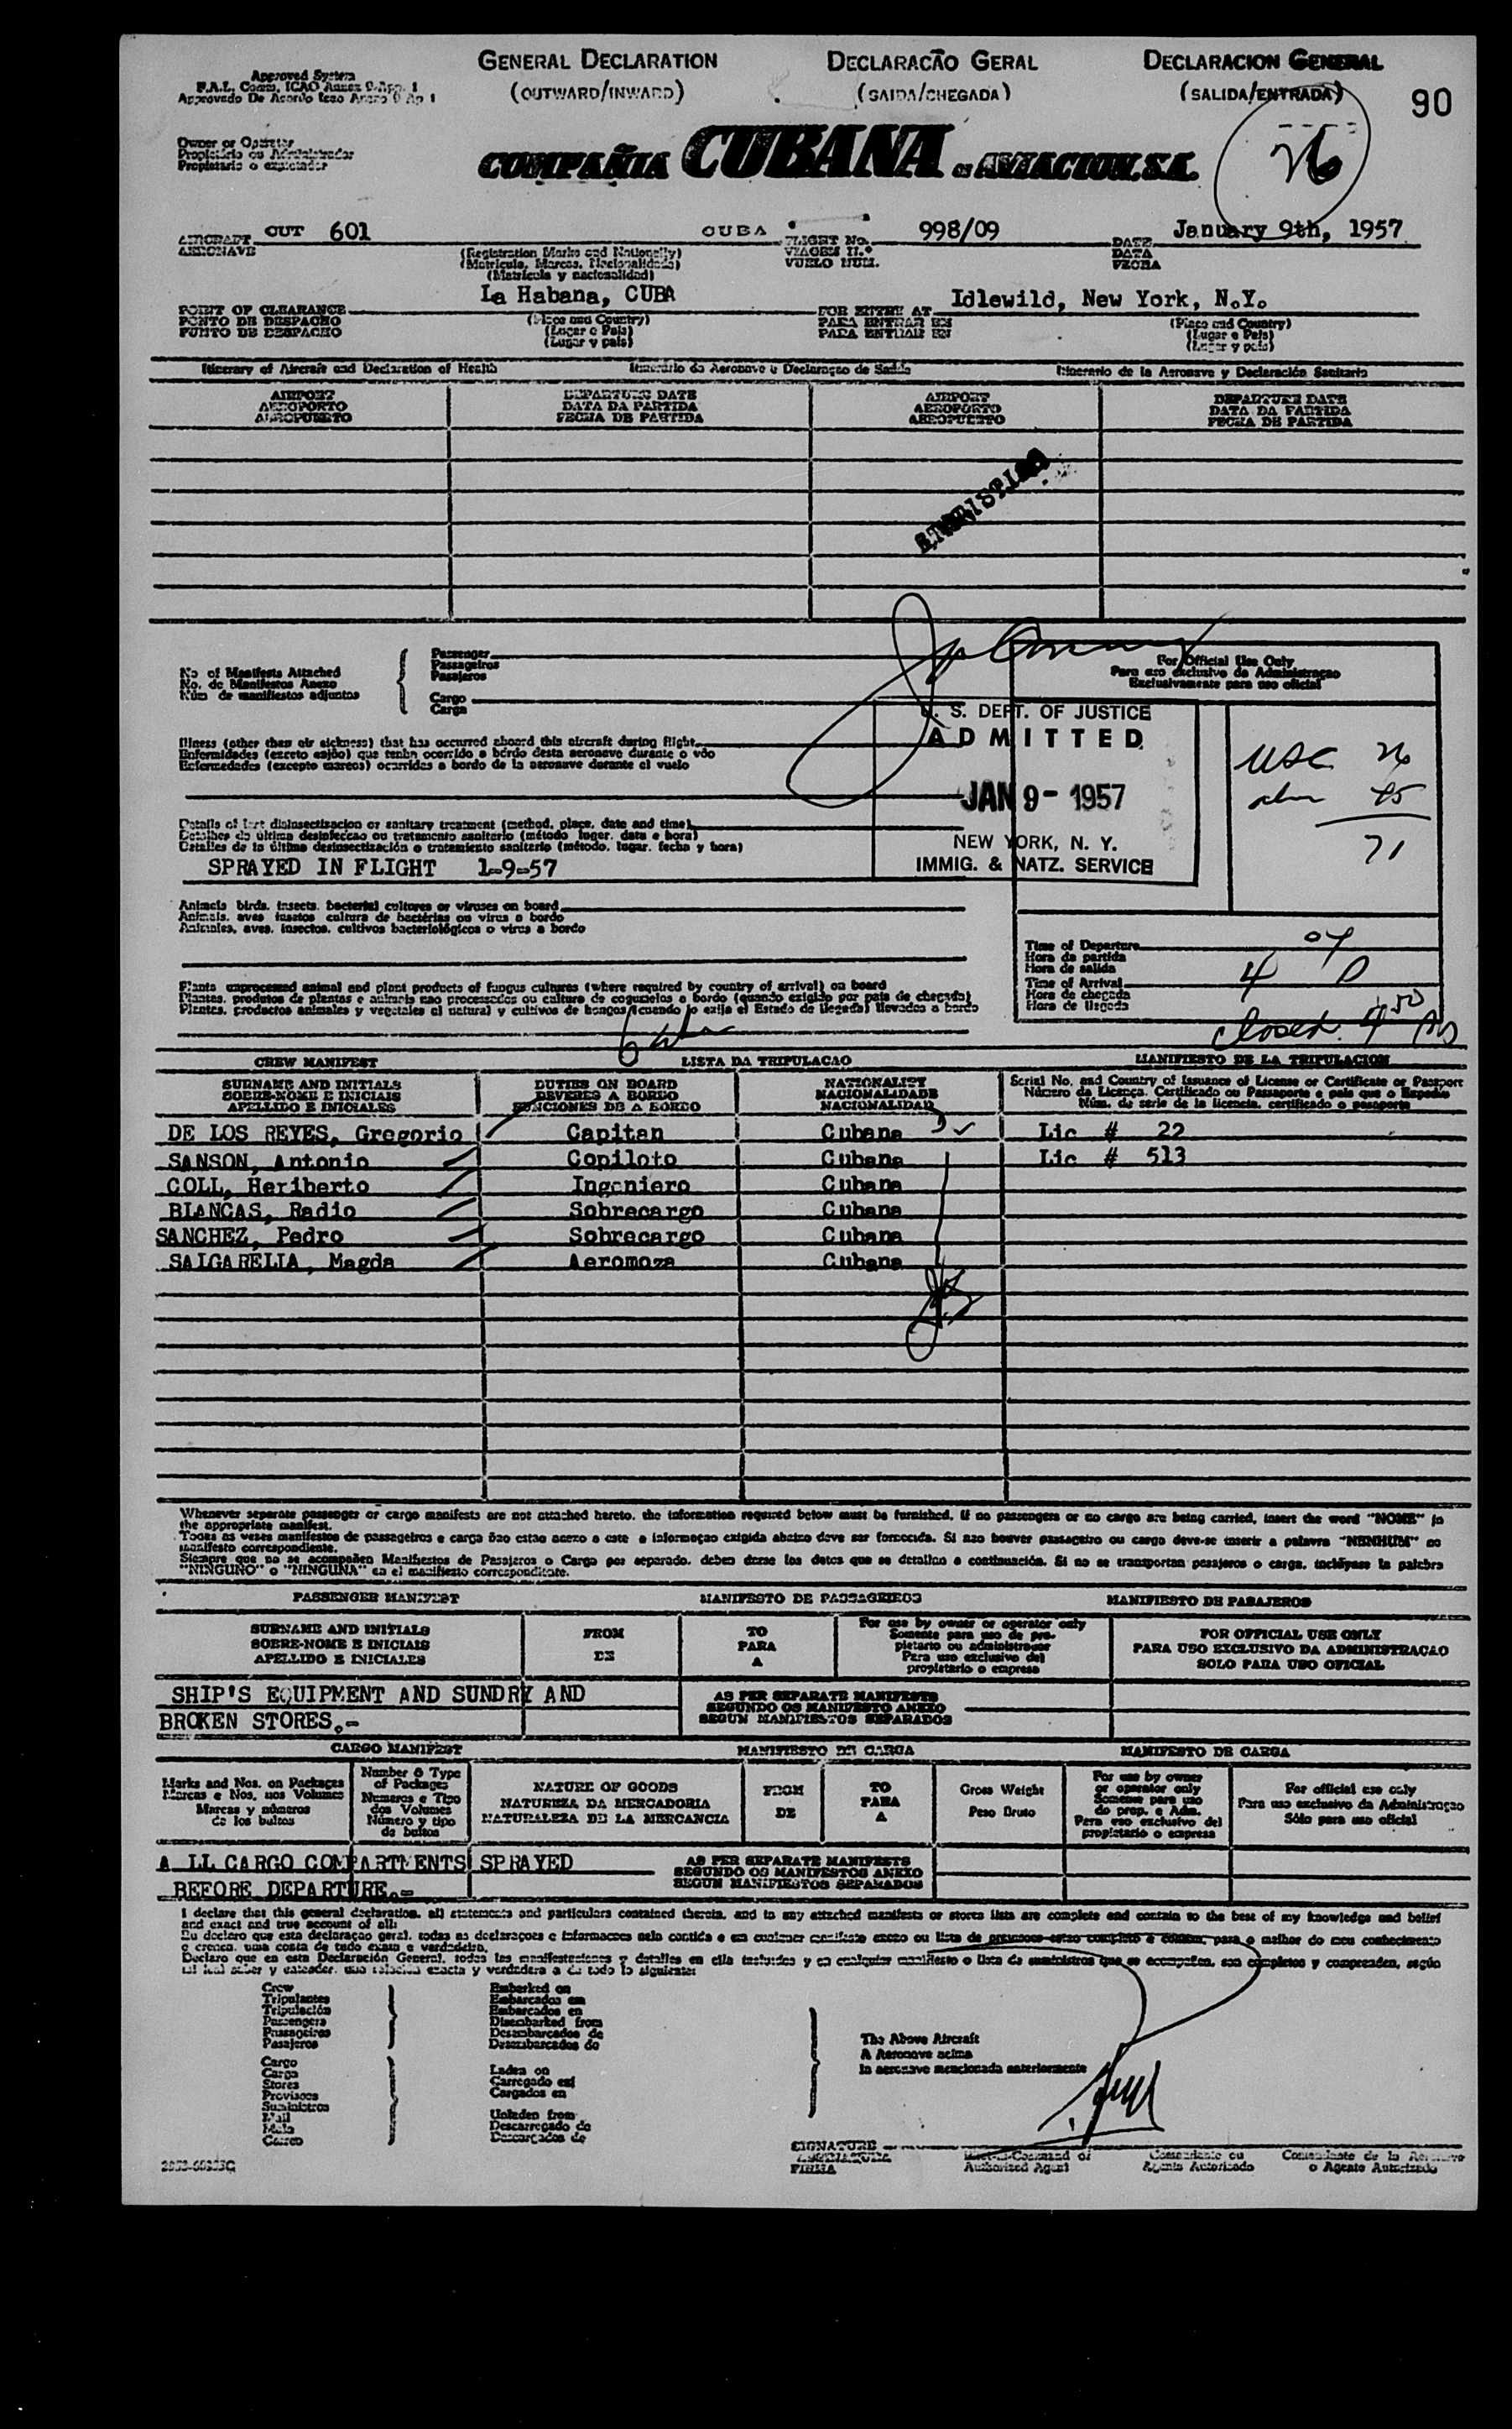 GENERAL DECLARATION
(OUTWARD/INWARD)
DECLARACÃO GERAL
(SAIDA/CHEGADA)
DECLARACION GENERAL
(SALIDA/ENTRADA)
90
Approved System
F.A.L. Comm. ICAO Annex 9-App. 1
Approvado De Acordo Icao Anexo 9 Ap 1
Owner or Operator
Propietario ou Administrador
Propietario o explotador
COMPAÑIA CUBANA DE AVIACION, S.A.
26
AIRCRAFT CUT 601 CUBA
AERONAVE
(Registration Marks and Nationality)
(Matricula, Marcas, Nacionalidade)
(Matricula y nacionalidad)
FLIGHT No. 998/09
VIAGEM N.º
VUELO NUM.
DATE January 9th, 1957
DATA
FECHA
POINT OF CLEARANCE La Habana, CUBA
PONTO DE DESPACHO
PUNTO DE DESPACHO
(Place and Country)
(Lugar e Pais)
(Lugar y pais)
FOR ENTRY AT Idlewild, New York, N.Y.
PARA ENTRAR EM
PARA ENTRAR EN
(Place and Country)
(Lugar e Pais)
(Lugar y pais)
Itinerary of Aircraft and Declaration of Health
Itinerario da Aeronave e Declaraçao de Saúde
Itinerario de la Aeronave y Declaración Sanitaria
AIRPORT
AEROPORTO
AEROPUERTO
DEPARTURE DATE
DATA DA PARTIDA
FECHA DE PARTIDA
AIRPORT
AEROPORTO
AEROPUERTO
DEPARTURE DATE
DATA DA PARTIDA
FECHA DE PARTIDA
No of Manifests Attached
No. de Manifestos Anexo
Núm de manifiestos adjuntos
Passenger
Passageiros
Pasajeros
Cargo
Carga
For Official Use Only
Para uso exclusivo da Administraçao
Exclusivamente para uso oficial
U. S. DEPT. OF JUSTICE
ADMITTED
JAN 9 - 1957
NEW YORK, N. Y.
IMMIG. & NATZ. SERVICE
USC 26
alien 45
71
Illness (other than air sickness) that has occurred aboard this aircraft during flight
Enfermidades (exceto enjôo) que tenha ocorrido a bórdo desta aeronave durante o vôo
Enfermedades (excepto mareos) ocurridas a bordo de la aeronave durante el vuelo
Details of last disinsectization or sanitary treatment (method, place, date and time)
Detalhes da última desinfeccao ou tratamento sanitario (método lugar, data e hora)
Detalles de la última desinsectización o tratamiento sanitario (método, lugar, fecha y hora)
SPRAYED IN FLIGHT 1-9-57
Animals birds, insects, bacterial cultures or viruses on board
Animais, aves insetos cultura de bactérias ou virus a bordo
Animales, aves, insectos, cultivos bacteriológicos o virus a bordo
Time of Departure
Hora da partida
Hora de salida
Time of Arrival
Hora de chegada
Hora de llegada
4 07 P
closed 4 50
Plants unprocessed animal and plant products of fungus cultures (where required by country of arrival) on board
Plantas, produtos de plantas e animais nao processados ou cultura de cogumelos a bordo (quando exigido por pais de chegada)
Plantas, productos animales y vegetales al natural y cultivos de hongos (cuando lo exija el Estado de llegada) llevados a bordo
CREW MANIFEST
LISTA DA TRIPULACAO
MANIFIESTO DE LA TRIPULACION
SURNAME AND INITIALS
SOBRE-NOME E INICIAIS
APELLIDO E INICIALES
DUTIES ON BOARD
DEVERES A BORDO
FUNCIONES DE A BORDO
NATIONALITY
NACIONALIDADE
NACIONALIDAD
Serial No. and Country of Issuance of License or Certificate or Passport
Número da Licença. Certificado ou Passaporte e pais que o Expediu
Núm. de serie de la licencia, certificado o pasaporte
DE LOS REYES, Gregorio Capitan Cubana Lic # 22
SANSON, Antonio Copiloto Cubana Lic # 513
COLL, Heriberto Ingeniero Cubana
BLANCAS, Radio Sobrecargo Cubana
SANCHEZ, Pedro Sobrecargo Cubana
SALGARELLA, Magda Aeromoza Cubana
Whenever separate passenger or cargo manifests are not attached hereto, the information required below must be furnished. If no passengers or no cargo are being carried, insert the word "NONE" in
the appropriate manifest.
Todas as vezes manifestos de passageiros e carga ñao estao anexo a este a informaçao exigida abaixo deve ser fornecida. Si nao houver passageiro ou cargo deve-se inserir a palavra "NENHUM" no
manifesto correspondiente.
Siempre que no se acompañen Manifiestos de Pasajeros o Cargo por separado, deben darse los datos que se detallan a continuación. Si no se transportan pasajeros o carga, inclúyase la palabra
"NINGUNO" o "NINGUNA" en el manifiesto correspondiente.
PASSENGER MANIFEST
MANIFESTO DE PASSAGEIROS
MANIFIESTO DE PASAJEROS
SURNAME AND INITIALS
SOBRE-NOME E INICIAIS
APELLIDO E INICIALES
FROM
DE
TO
PARA
A
For use by owner or operator only
Somente para uso de pro-
pietario ou administrador
Para uso exclusivo del
propietario o empresa
FOR OFFICIAL USE ONLY
PARA USO EXCLUSIVO DA ADMINISTRACAO
SOLO PARA USO OFICIAL
SHIP'S EQUIPMENT AND SUNDRY AND
BROKEN STORES.-
AS PER SEPARATE MANIFESTS
SEGUNDO OS MANIFESTO ANEXO
SEGUN MANIFIESTOS SEPARADOS
CARGO MANIFEST
MANIFIESTO DE CARGA
MANIFESTO DE CARGA
Marks and Nos. on Packages
Marcas e Nos. nos Volumes
Marcas y números
de los bultos
Number & Type
of Packages
Numeros e Tipo
dos Volumes
Número y tipo
de bultos
NATURE OF GOODS
NATUREZA DA MERCADORIA
NATURALEZA DE LA MERCANCIA
FROM
DE
TO
PARA
A
Gross Weight
Peso Bruto
For use by owner
or operator only
Somente para uso
do prop. e Adm.
Para uso exclusivo del
propietario o empresa
For official use only
Para uso exclusivo da Administraçao
Sólo para uso oficial
A LL CARGO COMPARTMENTS SPRAYED
BEFORE DEPARTURE.-
AS PER SEPARATE MANIFESTS
SEGUNDO OS MANIFESTOS ANEXO
SEGUN MANIFIESTOS SEPARADOS
I declare that this general declaration, all statements and particulars contained therein, and in any attached manifests or stores lists are complete and contain to the best of my knowledge and belief
and exact and true account of all:
Eu declaro que esta declaraçao geral, todas as declaraçoes e informacoes nela contida e em cualquer manifesto anexo ou lista de provisoes estao completo e contem, para o melhor do meu conhecimento
e crenca, uma conta de tudo exata e verdadeira.
Declaro que en esta Declaración General, todas las manifestaciones y detalles en ella incluidos y en cualquier manifiesto o lista de suministros que se acompañen, son completos y comprenden, según
mi leal saber y entender, una relación exacta y verdadera a de todo lo siguiente:
Crew
Tripulantes
Tripulación
Passengers
Passageiros
Pasajeros
Cargo
Carga
Stores
Provisoes
Suministros
Mail
Mala
Correo
Embarked on
Embarcados em
Embarcados en
Disembarked from
Desembarcados de
Desembarcados de
Laden on
Carregado em
Cargados en
Unladen from
Descarregado de
Descargados de
The Above Aircraft
A Aeronave acima
la aeronave mencionada anteriormente
SIGNATURE
ASSINATURA
FIRMA
Pilot-in-Command or
Authorized Agent
Comandante ou
Agente Autorizado
Comandante de la Aeronave
o Agente Autorizado